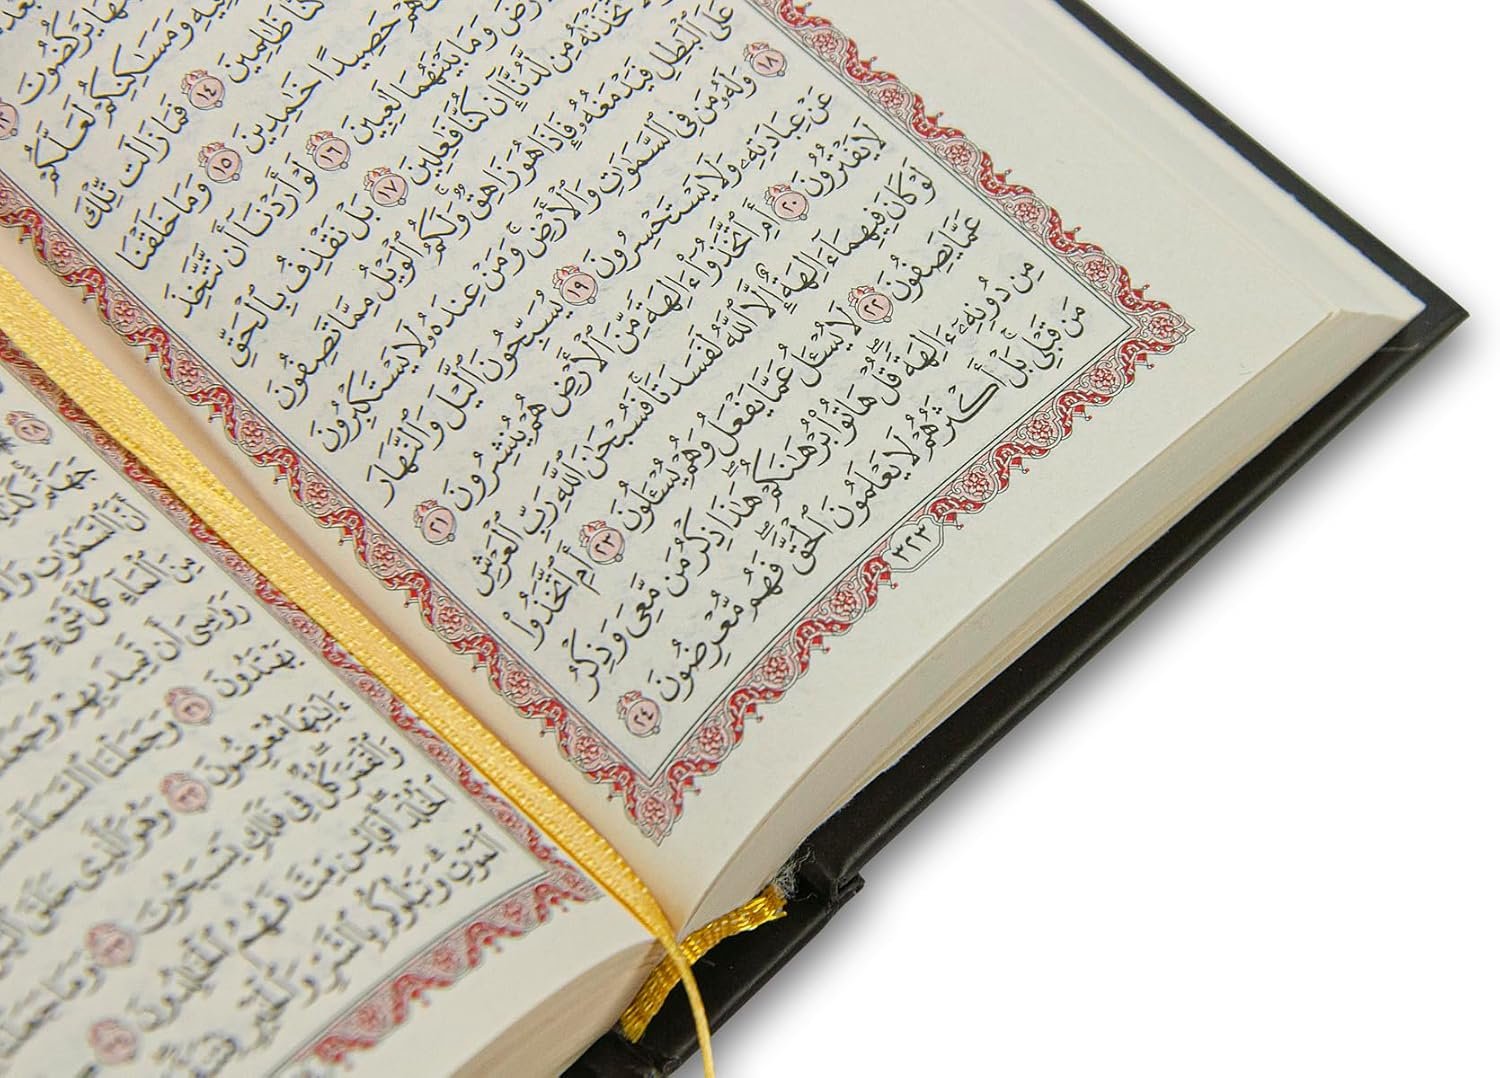 يَرْكُضُونَ
فِيهِ وَمَسَٰكِنِكُمْ لَعَلَّكُمْ
كُنَّا ظَٰلِمِينَ ١٤ فَمَا زَالَت تِّلْكَ
حَصِيدًا خَٰمِدِينَ ١٥ وَمَا خَلَقْنَا
وَمَا بَيْنَهُمَا لَٰعِبِينَ ١٦ لَوْ أَرَدْنَآ أَن نَّتَّخِذَ
لَّٱتَّخَذْنَٰهُ مِن لَّدُنَّآ إِن كُنَّا فَٰعِلِينَ ١٧ بَلْ نَقْذِفُ بِٱلْحَقِّ
عَلَى ٱلْبَٰطِلِ فَيَدْمَغُهُۥ فَإِذَا هُوَ زَاهِقٌ وَلَكُمُ ٱلْوَيْلُ مِمَّا تَصِفُونَ
١٨ وَلَهُۥ مَن فِى ٱلسَّمَٰوَٰتِ وَٱلْأَرْضِ وَمَنْ عِندَهُۥ لَا يَسْتَكْبِرُونَ
عَنْ عِبَادَتِهِۦ وَلَا يَسْتَحْسِرُونَ ١٩ يُسَبِّحُونَ ٱلَّيْلَ وَٱلنَّهَارَ
لَا يَفْتُرُونَ ٢٠ أَمِ ٱتَّخَذُوٓا۟ ءَالِهَةً مِّنَ ٱلْأَرْضِ هُمْ يُنشِرُونَ ٢١
لَوْ كَانَ فِيهِمَآ ءَالِهَةٌ إِلَّا ٱللَّهُ لَفَسَدَتَا فَسُبْحَٰنَ ٱللَّهِ رَبِّ ٱلْعَرْشِ
عَمَّا يَصِفُونَ ٢٢ لَا يُسْـَٔلُ عَمَّا يَفْعَلُ وَهُمْ يُسْـَٔلُونَ ٢٣ أَمِ ٱتَّخَذُوا۟
مِن دُونِهِۦٓ ءَالِهَةً قُلْ هَاتُوا۟ بُرْهَٰنَكُمْ هَٰذَا ذِكْرُ مَن مَّعِىَ وَذِكْرُ
مَن قَبْلِى بَلْ أَكْثَرُهُمْ لَا يَعْلَمُونَ ٱلْحَقَّ فَهُم مُّعْرِضُونَ ٢٤
٣٢٣
٢٨
جَهَنَّمَ كَذَٰلِكَ
أَنَّ ٱلسَّمَٰوَٰتِ
مِنَ ٱلْمَآءِ كُلَّ شَىْءٍ حَىٍّ
رَوَٰسِىَ أَن تَمِيدَ بِهِمْ وَجَعَلْنَا
يَهْتَدُونَ ٣١ وَجَعَلْنَا ٱلسَّمَآءَ
ءَايَٰتِهَا مُعْرِضُونَ ٣٢ وَهُوَ ٱلَّذِى خَلَقَ
وَٱلْقَمَرَ كُلٌّ فِى فَلَكٍ يَسْبَحُونَ ٣٣ وَمَا جَعَلْنَا
ٱلْخُلْدَ أَفَإِيْن مِّتَّ فَهُمُ ٱلْخَٰلِدُونَ
ٱلْمَوْتِ وَنَبْلُوكُم بِٱلشَّرِّ وَٱلْخَيْرِ فِتْنَةً